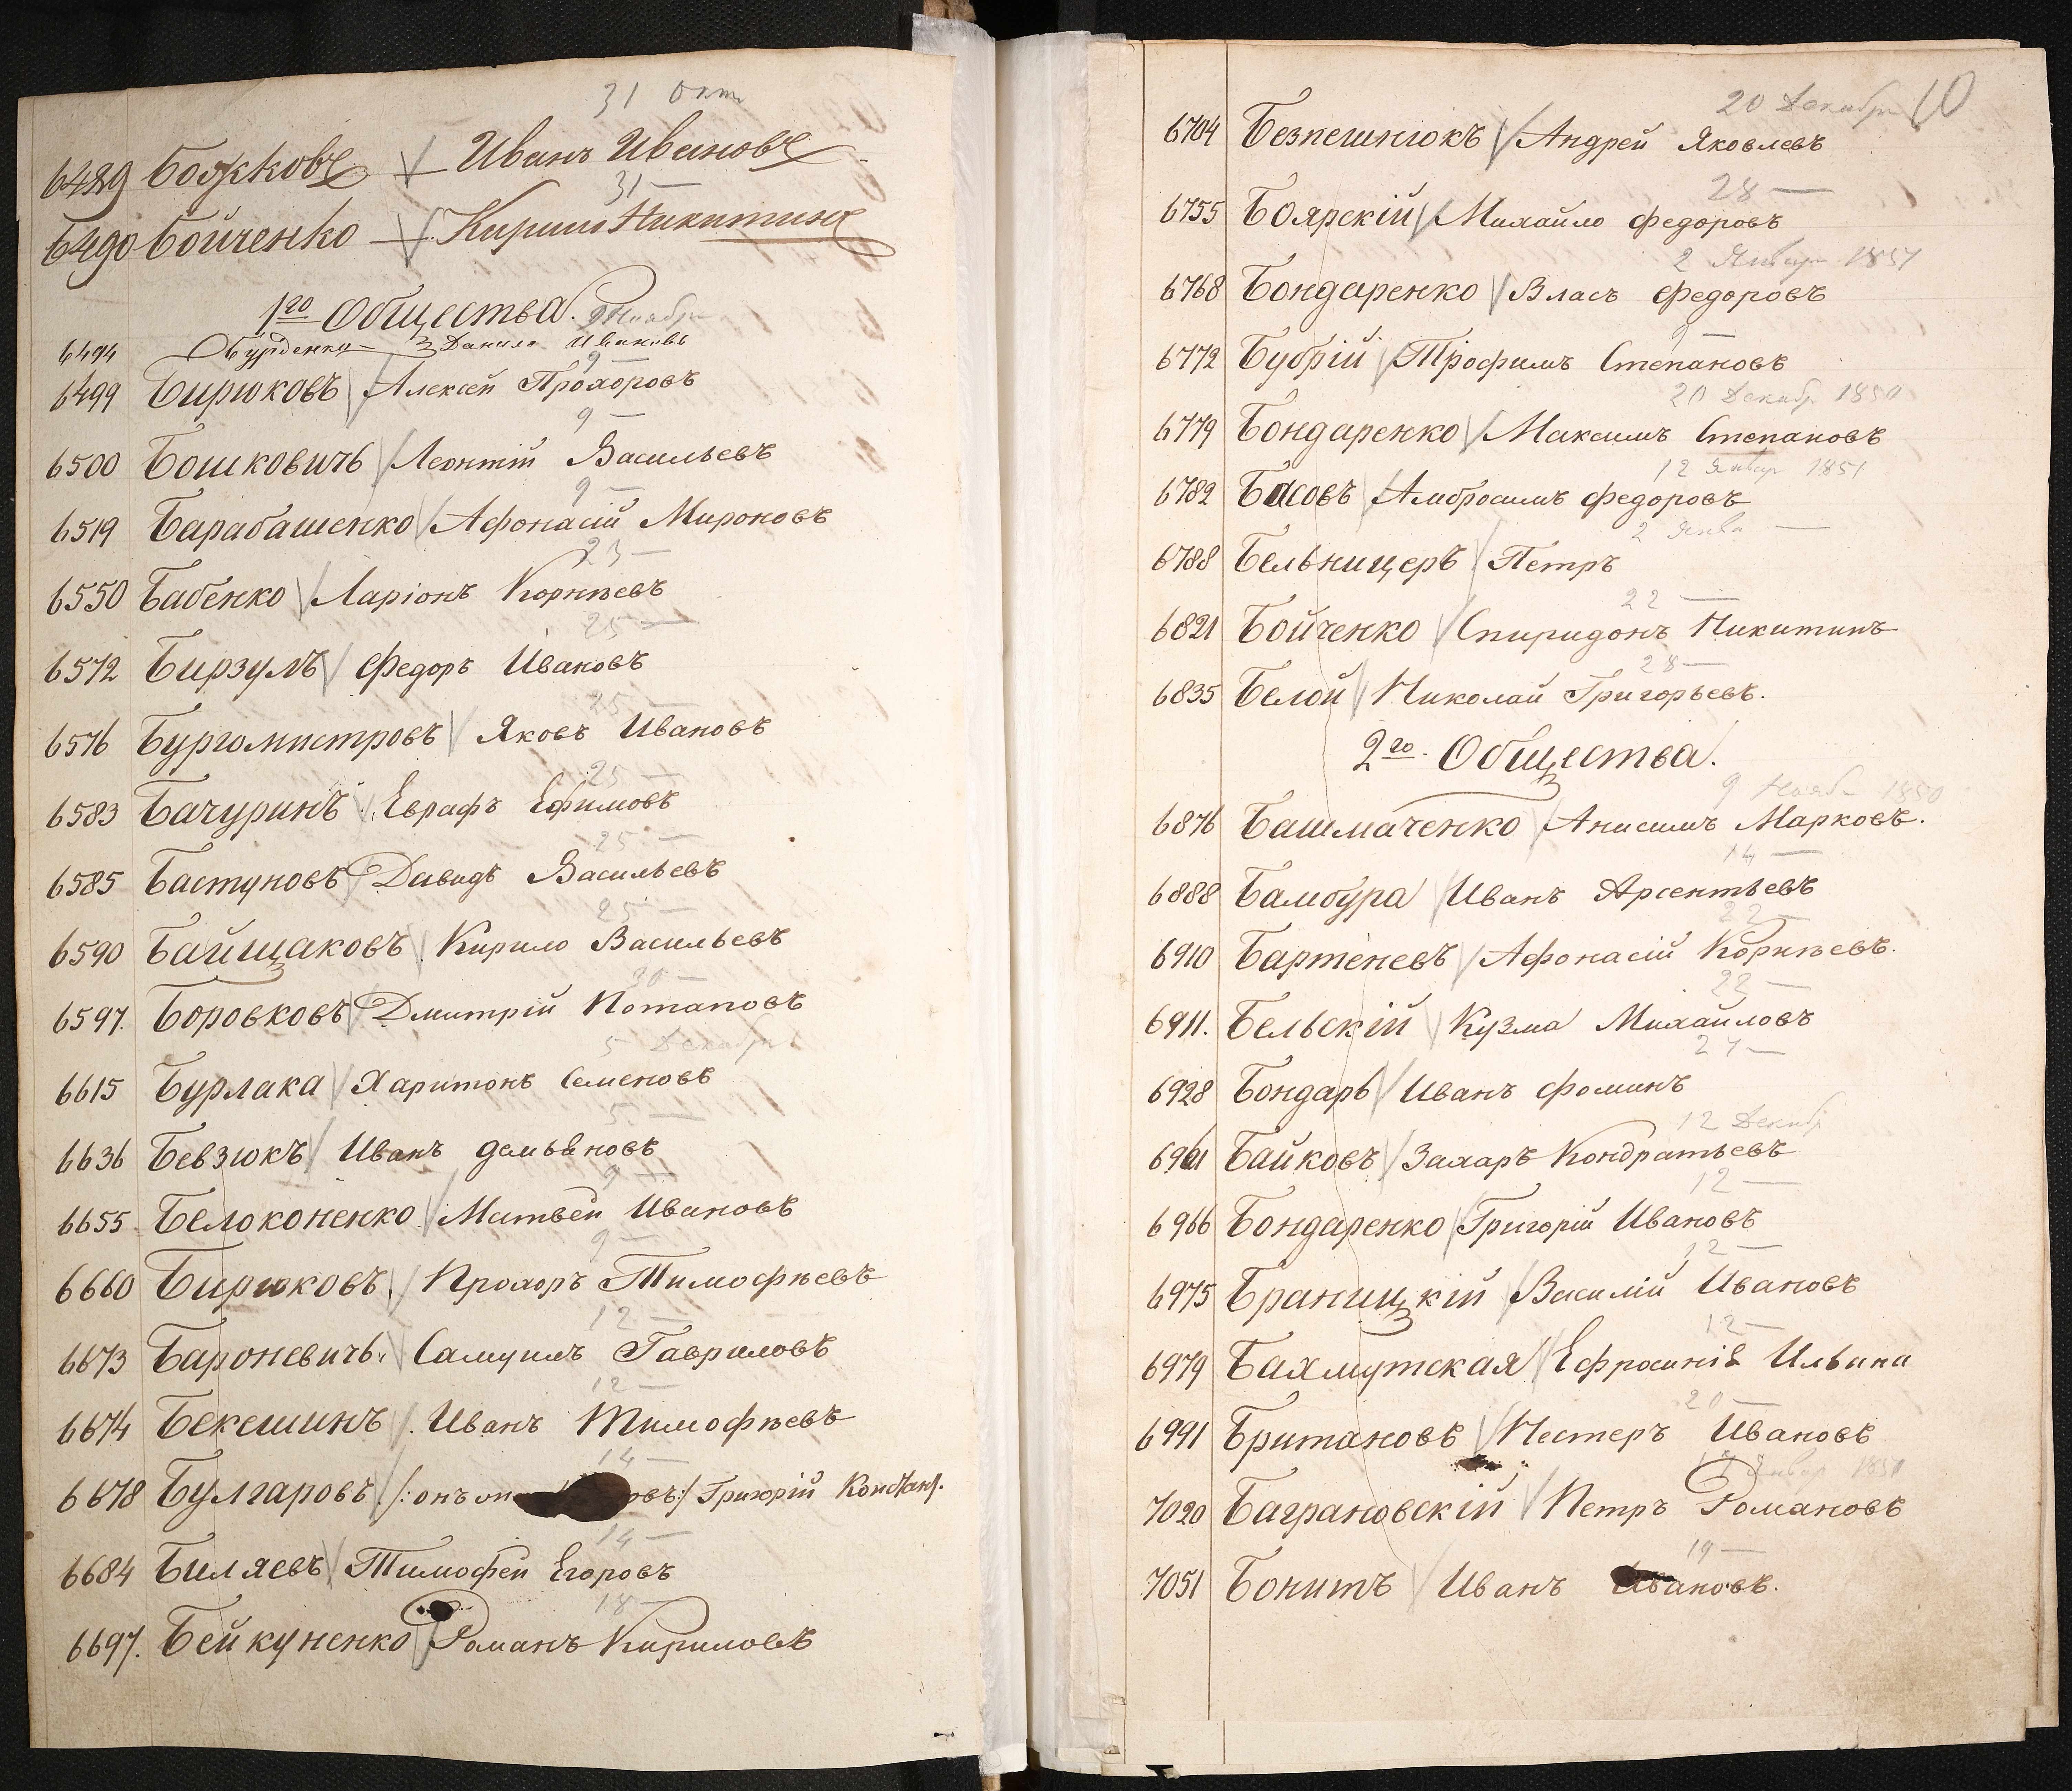 31 Окт
6489 Божковъ Иванъ Ивановъ
31 —
6490 Бойченко Кирило Никитинъ
1го Общества.
9 Ноября
6494 Бурденко Данило Ивановъ
9 —
6499 Бирюковъ Алексей Прохоровъ
9 —
6500 Бошковичъ Леонтій Васильевъ
9 —
6519 Барабашенко Афонасій Мироновъ
23 —
6550 Бабенко Ларіонъ Корнѣевъ
25 —
6572 Бирзулъ Федоръ Ивановъ
25 —
6576 Бургомистровъ Яковъ Ивановъ
25 —
6583 Бачуринъ Еврафъ Ефимовъ
25 —
6585 Бастуновъ Давидъ Васильевъ
25 —
6590 Байщаковъ Кирило Васильевъ
30 —
6597. Боровковъ Дмитрій Потаповъ
5 Декабря
6615 Бурлака Харитонъ Семеновъ
5 —
6636 Бевзюкъ Иванъ Демьяновъ
9 —
6655 Белоконенко Матвей Ивановъ
9 —
6660 Бирюковъ Прохоръ Тимофѣевъ
12 —
6673 Бароневичъ Самуилъ Гавриловъ
12 —
6674 Бекешинъ Иванъ Тимофѣевъ
14 —
6678 Булгаровъ /: онъ овъ:/ Григорій Констан.
14 —
6684 Биляевъ Тимофей Егоровъ
18 —
6697. Бейкуненко Романъ Кириловъ
10
20 Декабря
6704 Безпешнюкъ Андрей Яковлевъ
28 —
6755 Боярскій Михайло Федоровъ
2 Январ 1851
6768 Бондаренко Власъ Федоровъ
9 —
6772 Бубрій Трофимъ Степановъ
20 Декабр 1850
6779 Бондаренко Максимъ Степановъ
12 Январ 1851
6782 Басовъ Амбросимъ Федоровъ
2 Янва —
6788 Бельницеръ Петръ
22 —
6821 Бойченко Спиридонъ Никитинъ
28 —
6835 Белой Николай Григорьевъ.
2го Общества.
9 Ноябр 1850
6876 Башмаченко Анисимъ Марковъ.
14 —
6888 Бамбура Иванъ Арсентьевъ
22 —
6910 Бартеневъ Афонасій Корнѣевъ.
22 —
6911. Бельскій Кузма Михайловъ
27 —
6928 Бондарь Иванъ Фоминъ
12 Декабр
6961 Байковъ Захаръ Кондратьевъ
12 —
6966 Бондаренко Григорій Ивановъ
12 —
6975 Браницкій Василій Ивановъ
12 —
6979 Бахмутская Ефросинія Ильина
20 —
6991 Британовъ Нестеръ Ивановъ
Январ 1851
7020 Баграновскій Петръ Романовъ
19 —
7051 Бонитъ Иванъ Ивановъ.